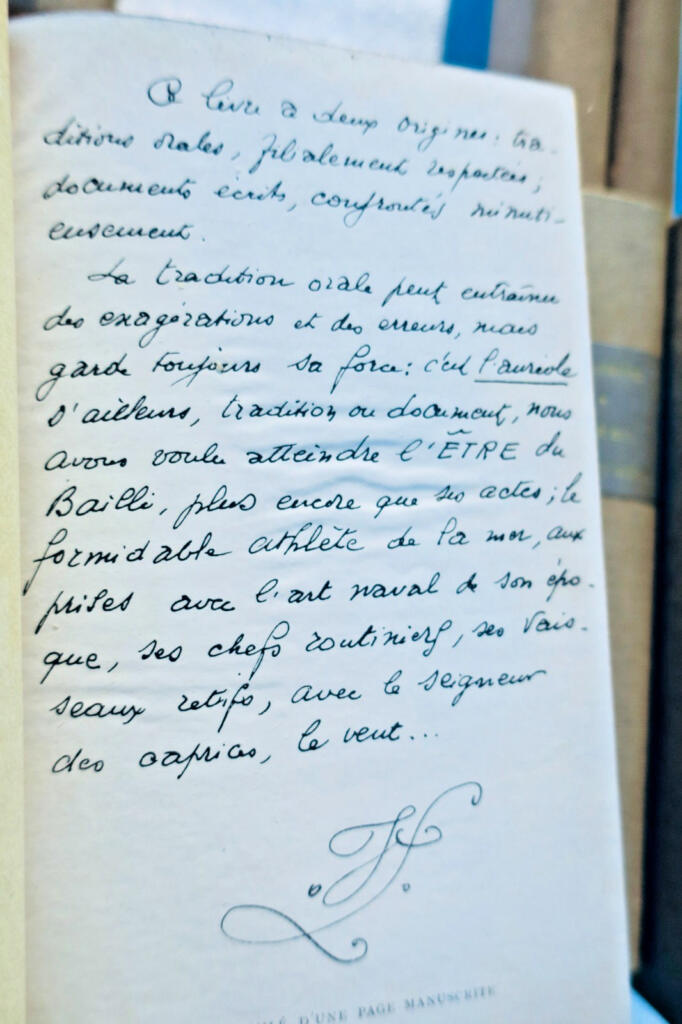 Ce livre a deux origines : tra-
ditions orales, filialement respectées ;
documents écrits, confrontés minuti-
eusement.
La tradition orale peut entraîner
des exagérations et des erreurs, mais
garde toujours sa force : c'est l'auréole
D'ailleurs, tradition ou document, nous
avons voulu atteindre l'ÊTRE du
Bailli, plus encore que ses actes ; le
formidable athlète de la mer, aux
prises avec l'art naval de son épo-
que, ses chefs routiniers, ses vais-
seaux rétifs, avec le seigneur
des caprices, le vent...
D'UNE PAGE MANUSCRITE